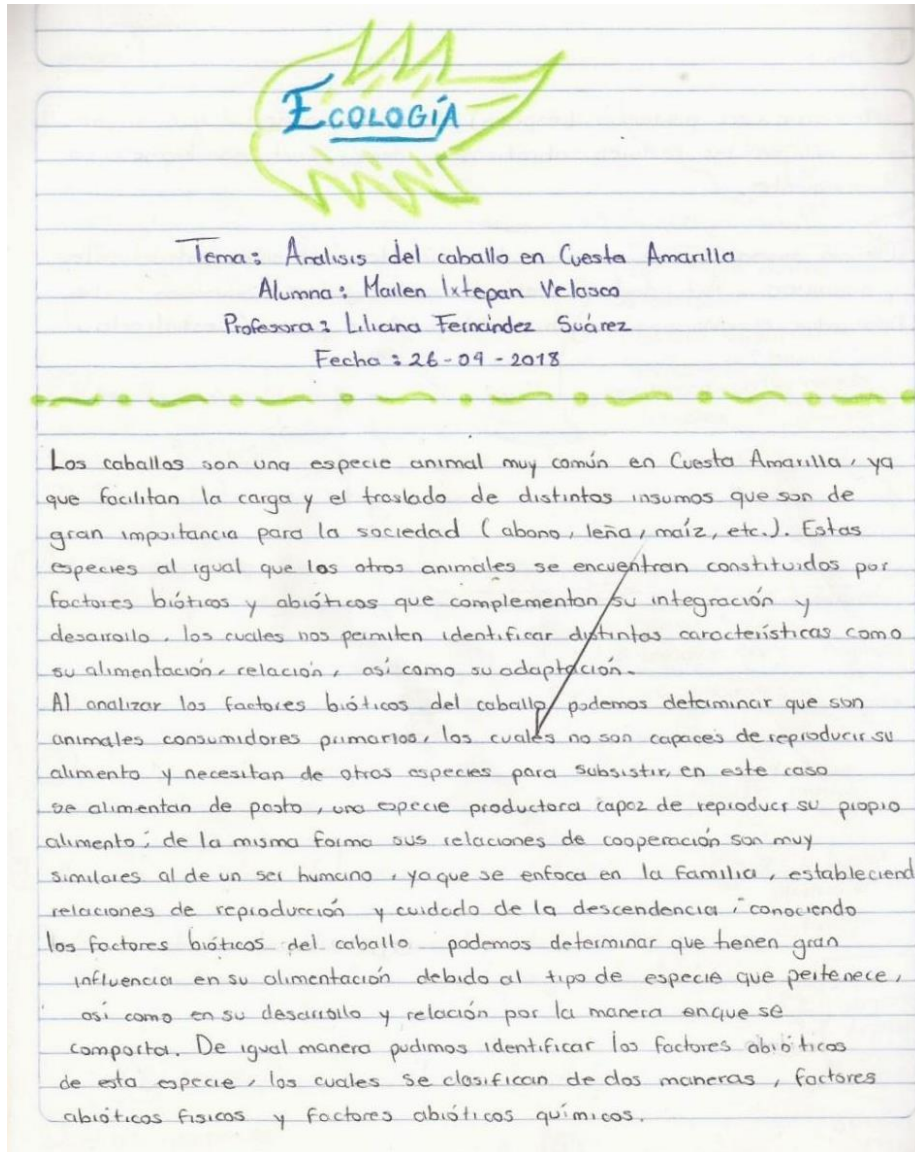 ECOLOGÍA
Tema: Analisis del caballo en Cuesta Amarilla
Alumna: Mailen Ixtepan Velasco
Profesora: Liliana Fernández Suárez
Fecha: 26-09-2018
Los caballos son una especie animal muy común en Cuesta Amarilla, ya
que facilitan la carga y el traslado de distintos insumos que son de
gran importancia para la sociedad (abono, leña, maíz, etc.). Estas
especies al igual que los otros animales se encuentran constituidos por
factores bióticos y abióticos que complementan su integración y
desarrollo, los cuales nos permiten identificar distintas características como
su alimentación, relación, así como su adaptación.
Al analizar los factores bióticos del caballo, podemos determinar que son
animales consumidores primarios, los cuales no son capaces de reproducir su
alimento y necesitan de otras especies para subsistir, en este caso
se alimentan de pasto, una especie productora capaz de reproducr su propio
alimento; de la misma forma sus relaciones de cooperación son muy
similares al de un ser humano, ya que se enfoca en la familia, estableciend
relaciones de reproducción y cuidado de la descendencia; conociendo
los factores bióticos del caballo podemos determinar que tienen gran
influencia en su alimentación debido al tipo de especie que pertenece,
así como en su desarrollo y relación por la manera enque se
comporta. De igual manera pudimos identificar los factores abióticos
de esta especie, los cuales se clasifican de dos maneras, factores
abióticos fisicos y factores abióticos químicos.